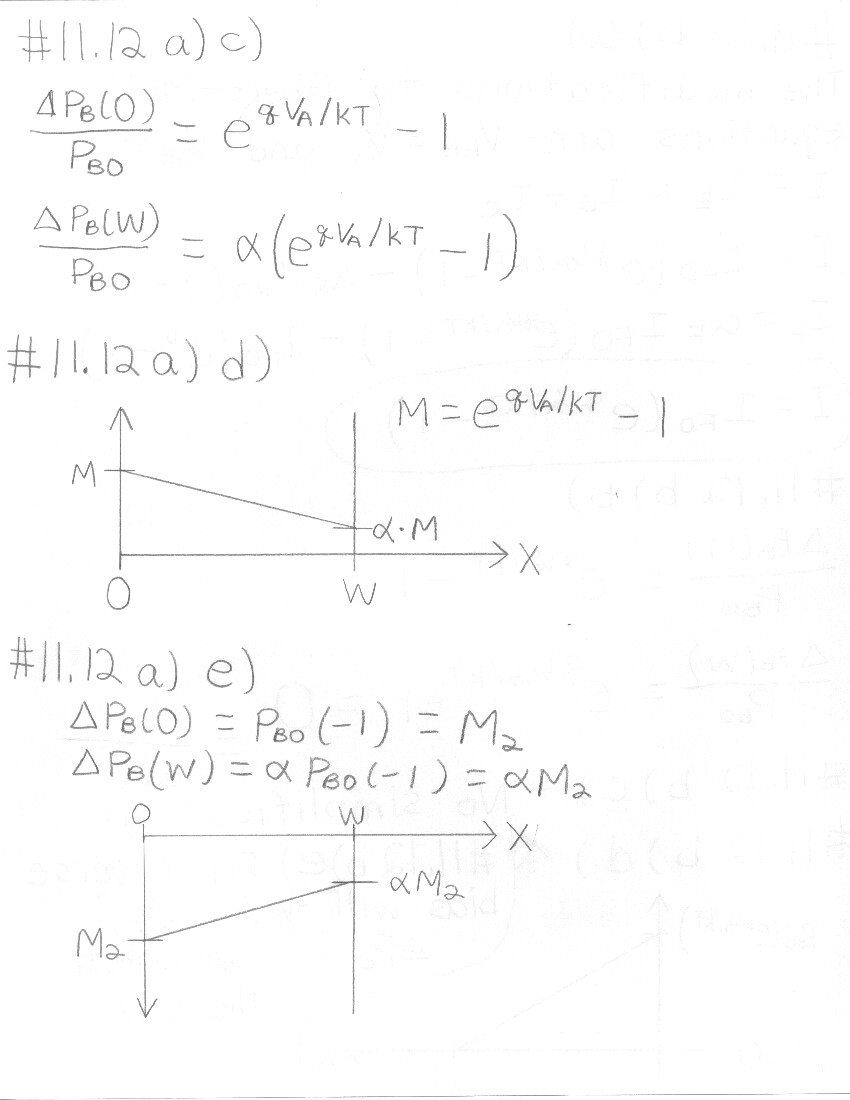 #11.12 a) c)
ΔPB(0)/PB0 = e^qVA/kT - 1
ΔPB(W)/PB0 = α(e^qVA/kT - 1)
#11.12 a) d)
M = e^qVA/kT - 1
M
α·M
X
0 W
#11.12 a) e)
ΔPB(0) = PB0(-1) = M2
ΔPB(W) = α PB0(-1) = αM2
0 W
X
αM2
M2